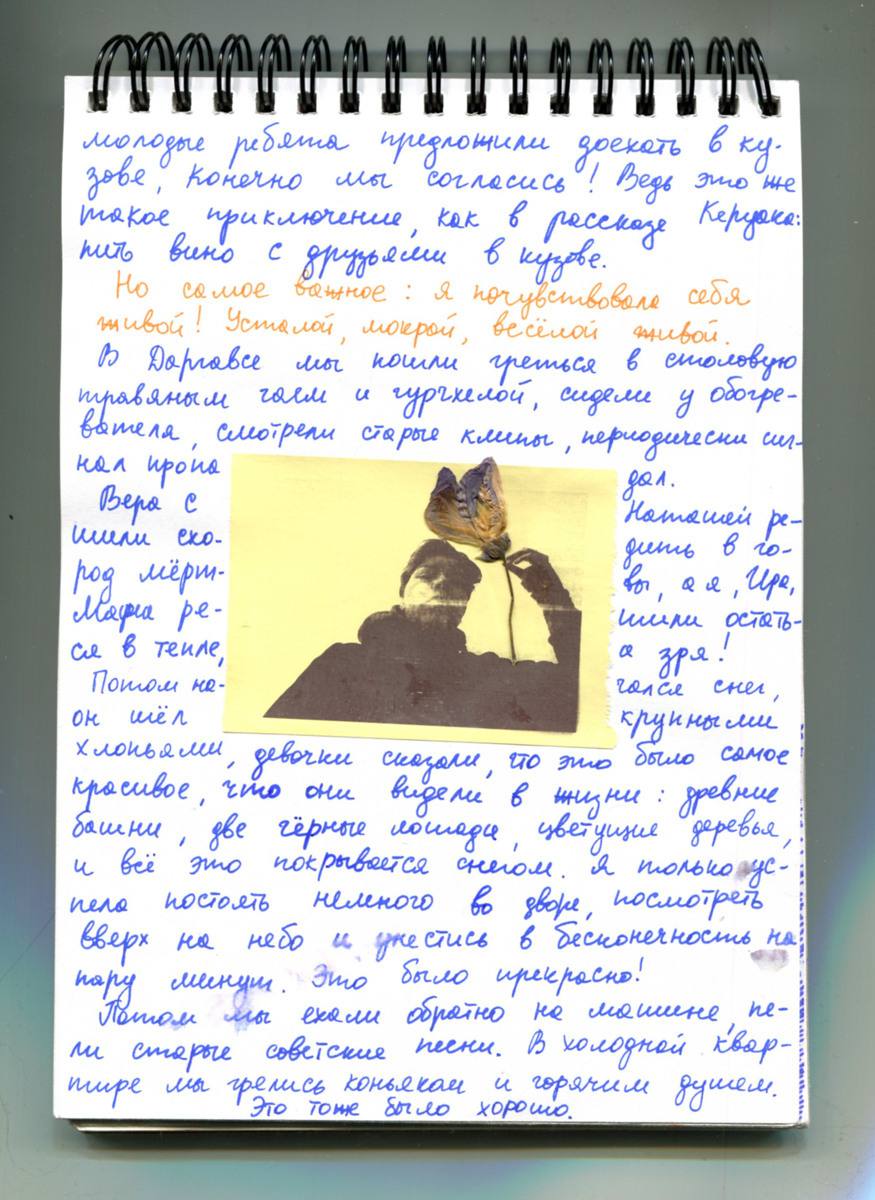 молодые ребята предложили доехать в ку-
зове, конечно мы согласись! Ведь это же
такое приключение, как в рассказе Керуака:
пить вино с друзьями в кузове.
Но самое важное: я почувствовала себя
живой! Усталой, мокрой, весёлой живой.
В Даргавсе мы пошли греться в столовую
травяным чаем и чурчхелой, сидели у обогре-
вателя, смотрели старые клипы, периодически сиг-
нал пропа дал.
Вера с Наташей ре-
шили схо- дить в го-
род мёрт- вы, а я, Ира,
Маша ре- шили остать-
ся в тепле, а зря!
Потом на- чался снег,
он шёл крупными
хлопьями, девочки сказали, что это было самое
красивое, что они видели в жизни: древние
башни, две чёрные лошади, цветущие деревья,
и всё это покрывается снегом. Я только ус-
пела постоять немного во дворе, посмотреть
вверх на небо и унестись в бесконечность на
пару минут. Это было прекрасно!
Потом мы ехали обратно на машине, пе-
ли старые советские песни. В холодной квар-
тире мы грелись коньяком и горячим душем.
Это тоже было хорошо.